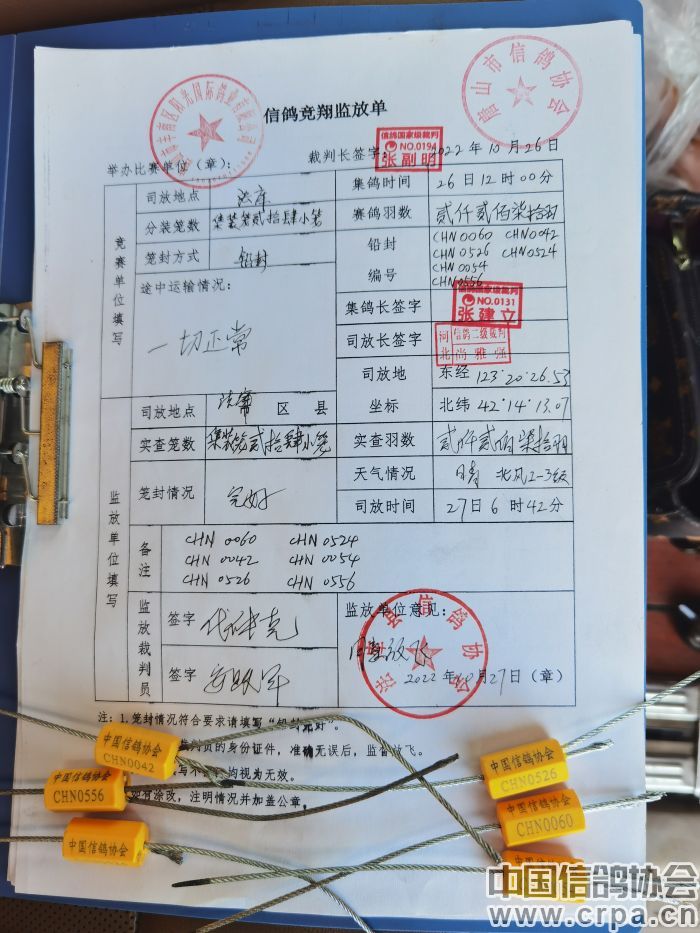 信鸽竞翔监放单
唐山市信鸽协会
举办比赛单位（章）：
裁判长签字
信鸽国家级裁判
NO.0194
张副明
2022年10月26日
竞赛单位填写
司放地点 法库
集鸽时间 26日12时00分
分装笼数 集装笼贰拾肆小笼
赛鸽羽数 贰仟贰佰柒拾羽
笼封方式 铅封
铅封编号
CHN0060 CHN0042
CHN0526 CHN0524
CHN0054
CHN0556
途中运输情况：
一切正常
集鸽长签字
信鸽国家级裁判
NO.0131
张建立
司放长签字
河北
信鸽二级裁判
尚雅强
司放地坐标
东经 123°20·26.53
北纬 42°14·13.07
监放单位填写
司放地点 法库 区县
实查笼数 集装笼贰拾肆小笼
实查羽数 贰仟贰佰柒拾羽
笼封情况 完好
天气情况 晴 北风2-3级
司放时间 27日6时42分
备注
CHN 0060 CHN 0524
CHN 0042 CHN 0054
CHN 0526 CHN 0556
监放裁判员
签字
签字
监放单位意见：
同意放飞
法库县信鸽协会
2022年10月27日（章）
注：1.笼封情况符合要求请填写“铅封完好”。
裁判员的身份证件，准确无误后，监督放飞。
均视为无效。
如有涂改，注明情况并加盖公章。
中国信鸽协会
CHN0042
中国信鸽协会
CHN0556
中国信鸽协会
中国信鸽协会
CHN0526
中国信鸽协会
CHN0060
中国信鸽协会
www.crpa.cn